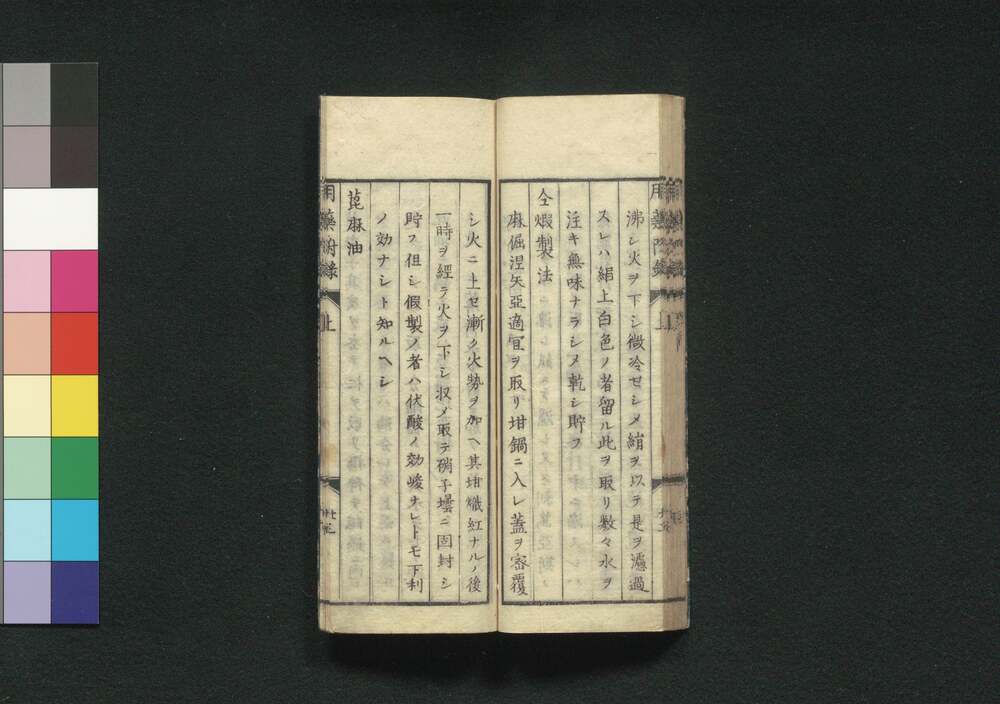 沸シ火ヲ下シ微冷セシメ絹ヲ以テ是ヲ濾過
スレハ絹上白色ノ者留ル此ヲ取リ数々水ヲ
注キ無味ナラシメ乾シ貯フ
仝煆製法
麻倔涅矢亜適宜ヲ取リ坩鍋ニ入レ蓋ヲ密覆
シ火ニ上セ漸ク火勢ヲ加ヘ其坩熾紅ナルノ後
一時ヲ經テ火ヲ下シ収メ取テ硝子壜ニ固封シ
貯フ但シ假製ノ者ハ伏酸ノ効峻ナレトモ下利
ノ効ナシト知ルヘシ
萞麻油
用藥附録 上